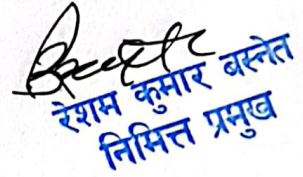 रेशम कुमार बस्नेत
निमित्त प्रमुख